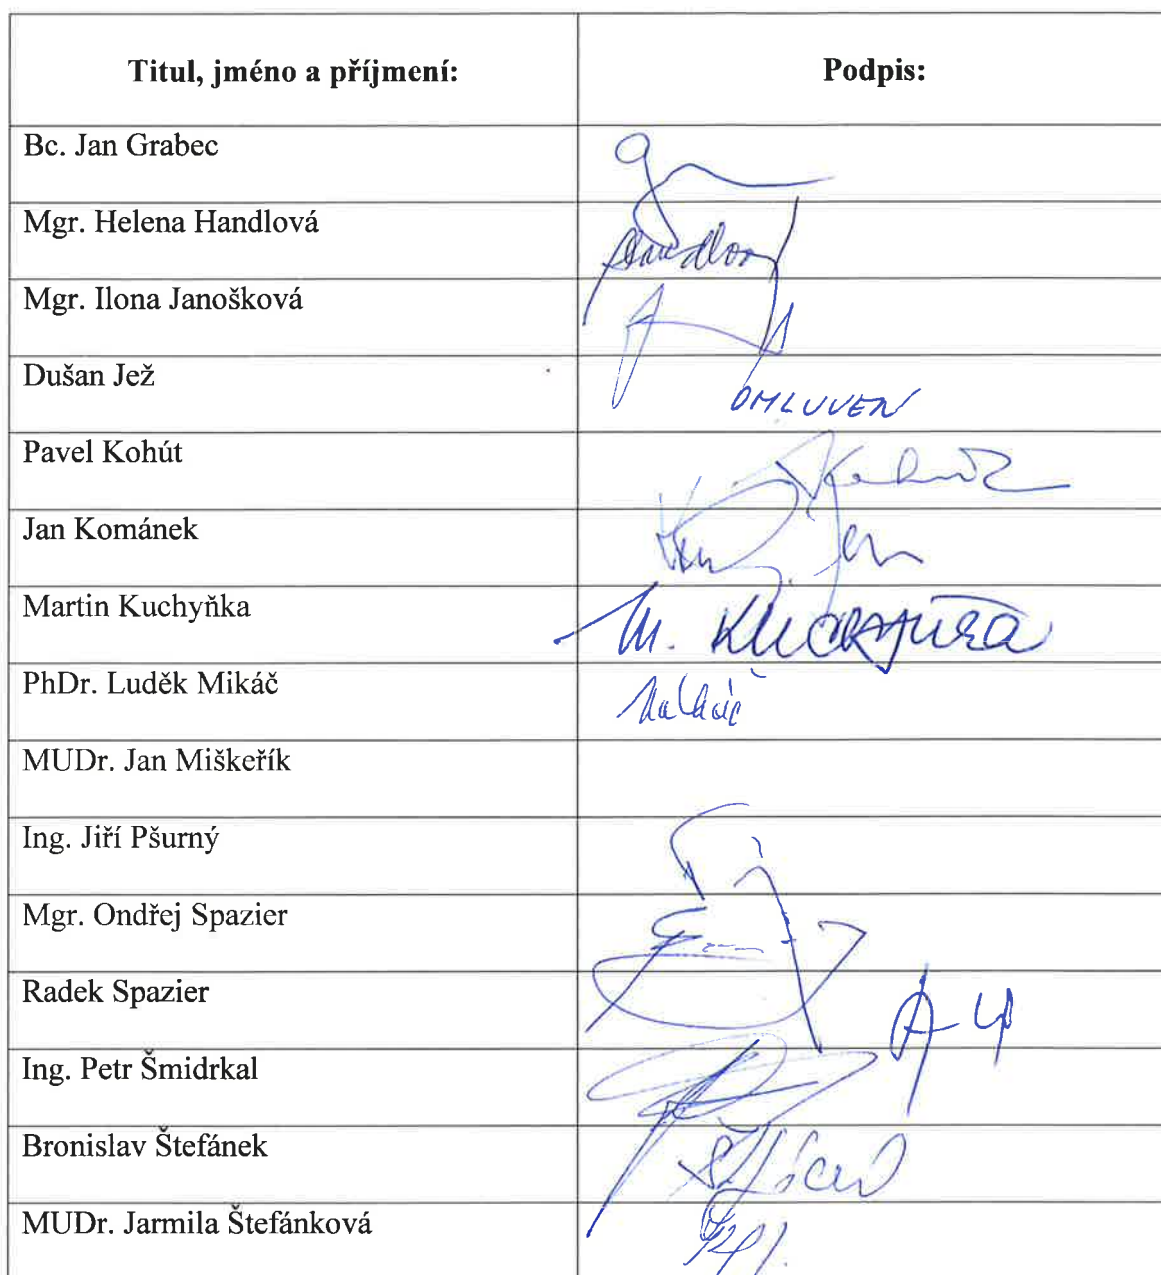 Titul, jméno a příjmení: Podpis:
Bc. Jan Grabec
Mgr. Helena Handlová
Mgr. Ilona Janošková
Dušan Jež OMLUVEN
Pavel Kohút
Jan Kománek
Martin Kuchyňka M.
PhDr. Luděk Mikáč
MUDr. Jan Miškeřík
Ing. Jiří Pšurný
Mgr. Ondřej Spazier
Radek Spazier
Ing. Petr Šmidrkal
Bronislav Štefánek
MUDr. Jarmila Štefánková